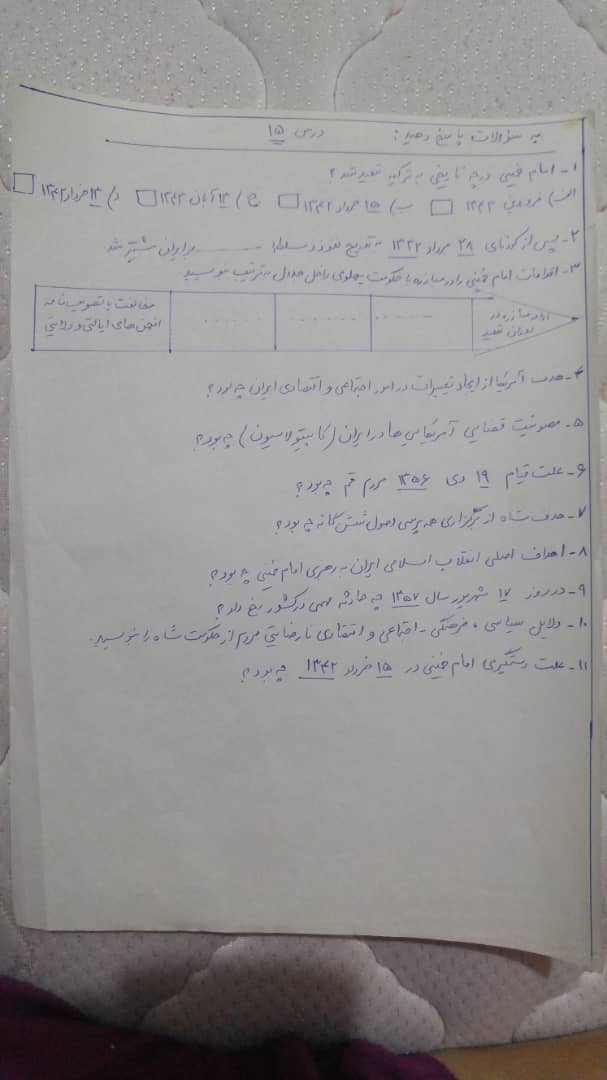 به سؤالات پاسخ دهید: درس ۱۵
۱- امام خمینی در چه تاریخی به ترکیه تبعید شد؟
الف) فروردین ۱۳۴۳ ب) ۱۵ خرداد ۱۳۴۲ ج) ۱۳ آبان ۱۳۴۳ د) ۱۴ خرداد ۱۳۴۲
۲- پس از کودتای ۲۸ مرداد ۱۳۳۲ به تدریج نفوذ و سلطه‌ی ........ بر ایران بیشتر شد
۳- اقدامات امام خمینی را در مبارزه با حکومت پهلوی داخل جدول به ترتیب بنویسید
مخالفت با تصویب‌نامه انجمن‌های ایالتی و ولایتی ...... ....... ...... ادامه مبارزه در دوران تبعید
۴- هدف آمریکا از ایجاد تغییرات در امور اجتماعی و اقتصادی ایران چه بود؟
۵- مصونیت قضایی آمریکایی‌ها در ایران (کاپیتولاسیون) چه بود؟
۶- علت قیام ۱۹ دی ۱۳۵۶ مردم قم چه بود؟
۷- هدف شاه از برگزاری همه‌پرسی اصول شش‌گانه چه بود؟
۸- اهداف اصلی انقلاب اسلامی ایران به رهبری امام خمینی چه بود؟
۹- در روز ۱۷ شهریور سال ۱۳۵۷ چه حادثه مهمی در کشور رخ داد؟
۱۰- دلایل سیاسی، فرهنگی - اجتماعی و اقتصادی نارضایتی مردم از حکومت شاه را بنویسید.
۱۱- علت دستگیری امام خمینی در ۱۵ خرداد ۱۳۴۲ چه بود؟